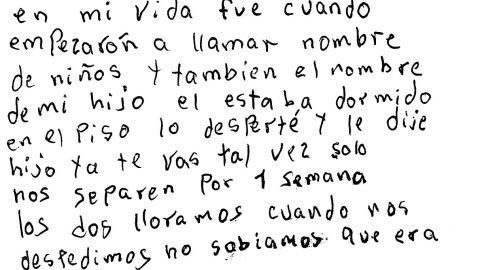 en mi vida fue cuando
empezarón a llamar nombre
de niños y tambien el nombre
de mi hijo el estaba dormido
en el piso lo desperté y le dije
hijo ya te vas tal vez solo
nos separen por 1 semana
los dos lloramos cuando nos
despedimos no sabiamos que era